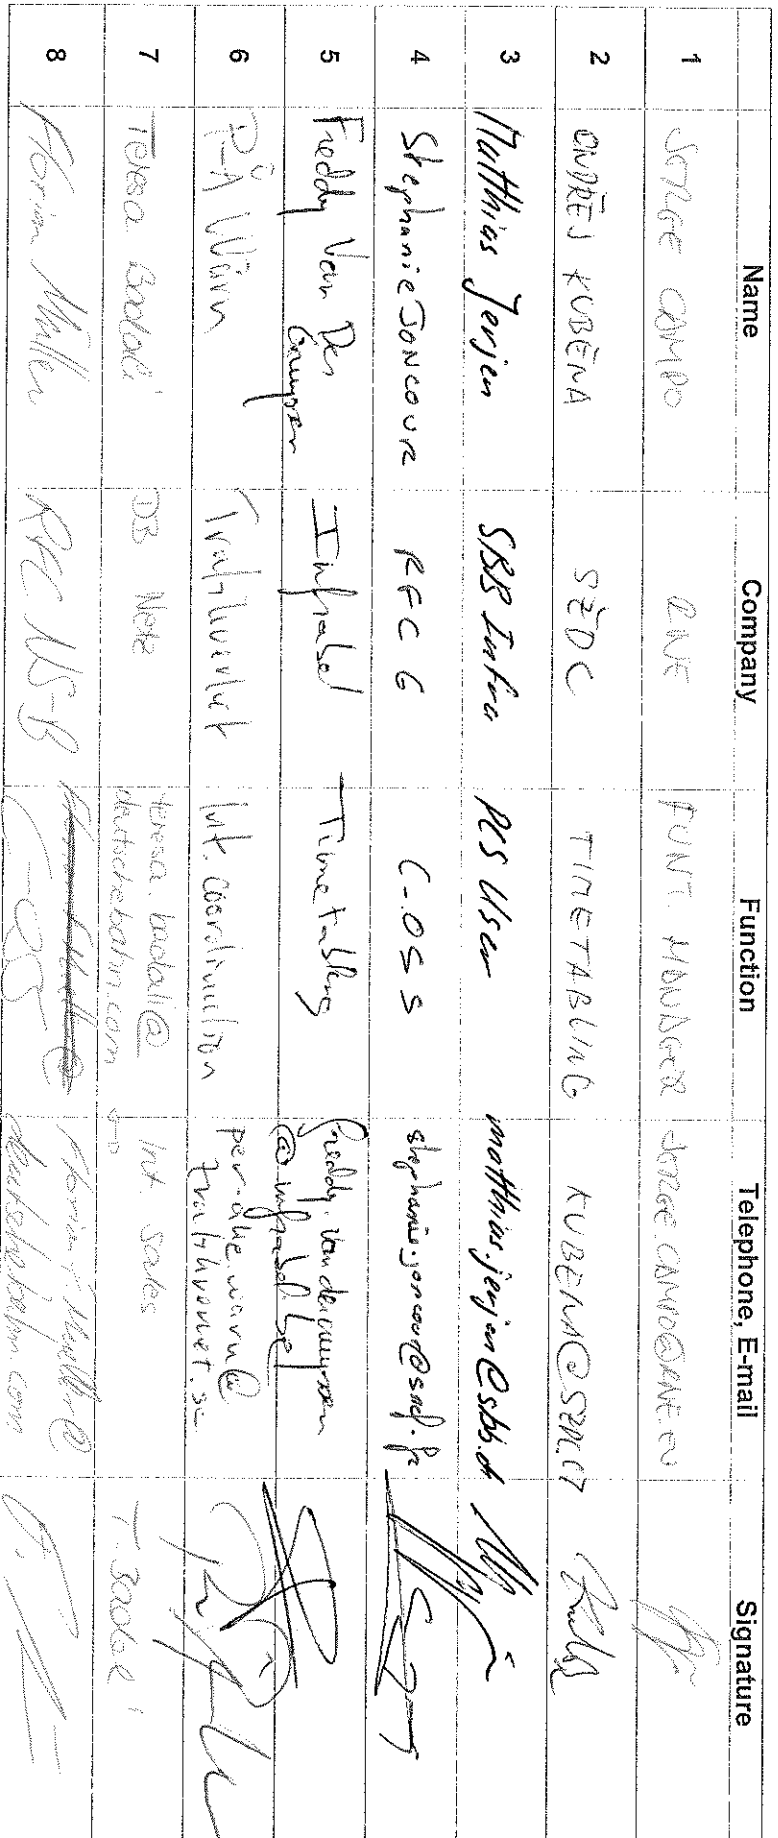 Name Company Function Telephone, E-mail Signature
1 JORGE CAMPO RNE FUNT. MANAGER
2 ONDŘEJ KUBĚNA SŽDC TIMETABLING KUBENA@SZDC.CZ
3 Matthias Jerjen SBB Infra PCS User matthias.jerjen@sbb.ch
4 Stephanie JONCOUR RFC 6 C-OSS stephanie.joncour@sncf.fr
5 Freddy Van Der Cruyssen Infrabel Timetabling freddy.vandercruyssen
@infrabel.be
6 P-Å Wärn Trafikverket Int. Coordination per-ake.warn@
trafikverket.se
7 Teresa Badalí DB Netz teresa.badali@
deutschebahn.com Int. Sales T. Badalí
8 Florian Müller RFC NS-B C-OSS Florian.F.Mueller@
deutschebahn.com